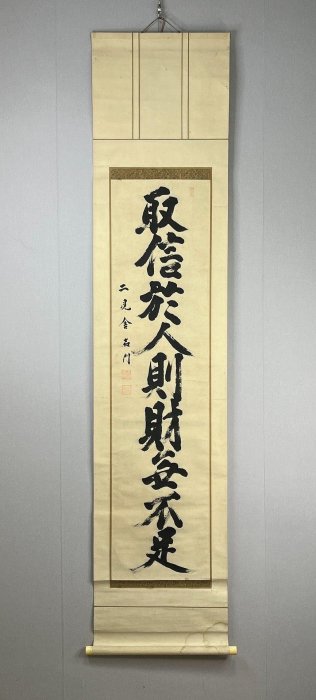 取信於人則財無不足
二見金石門